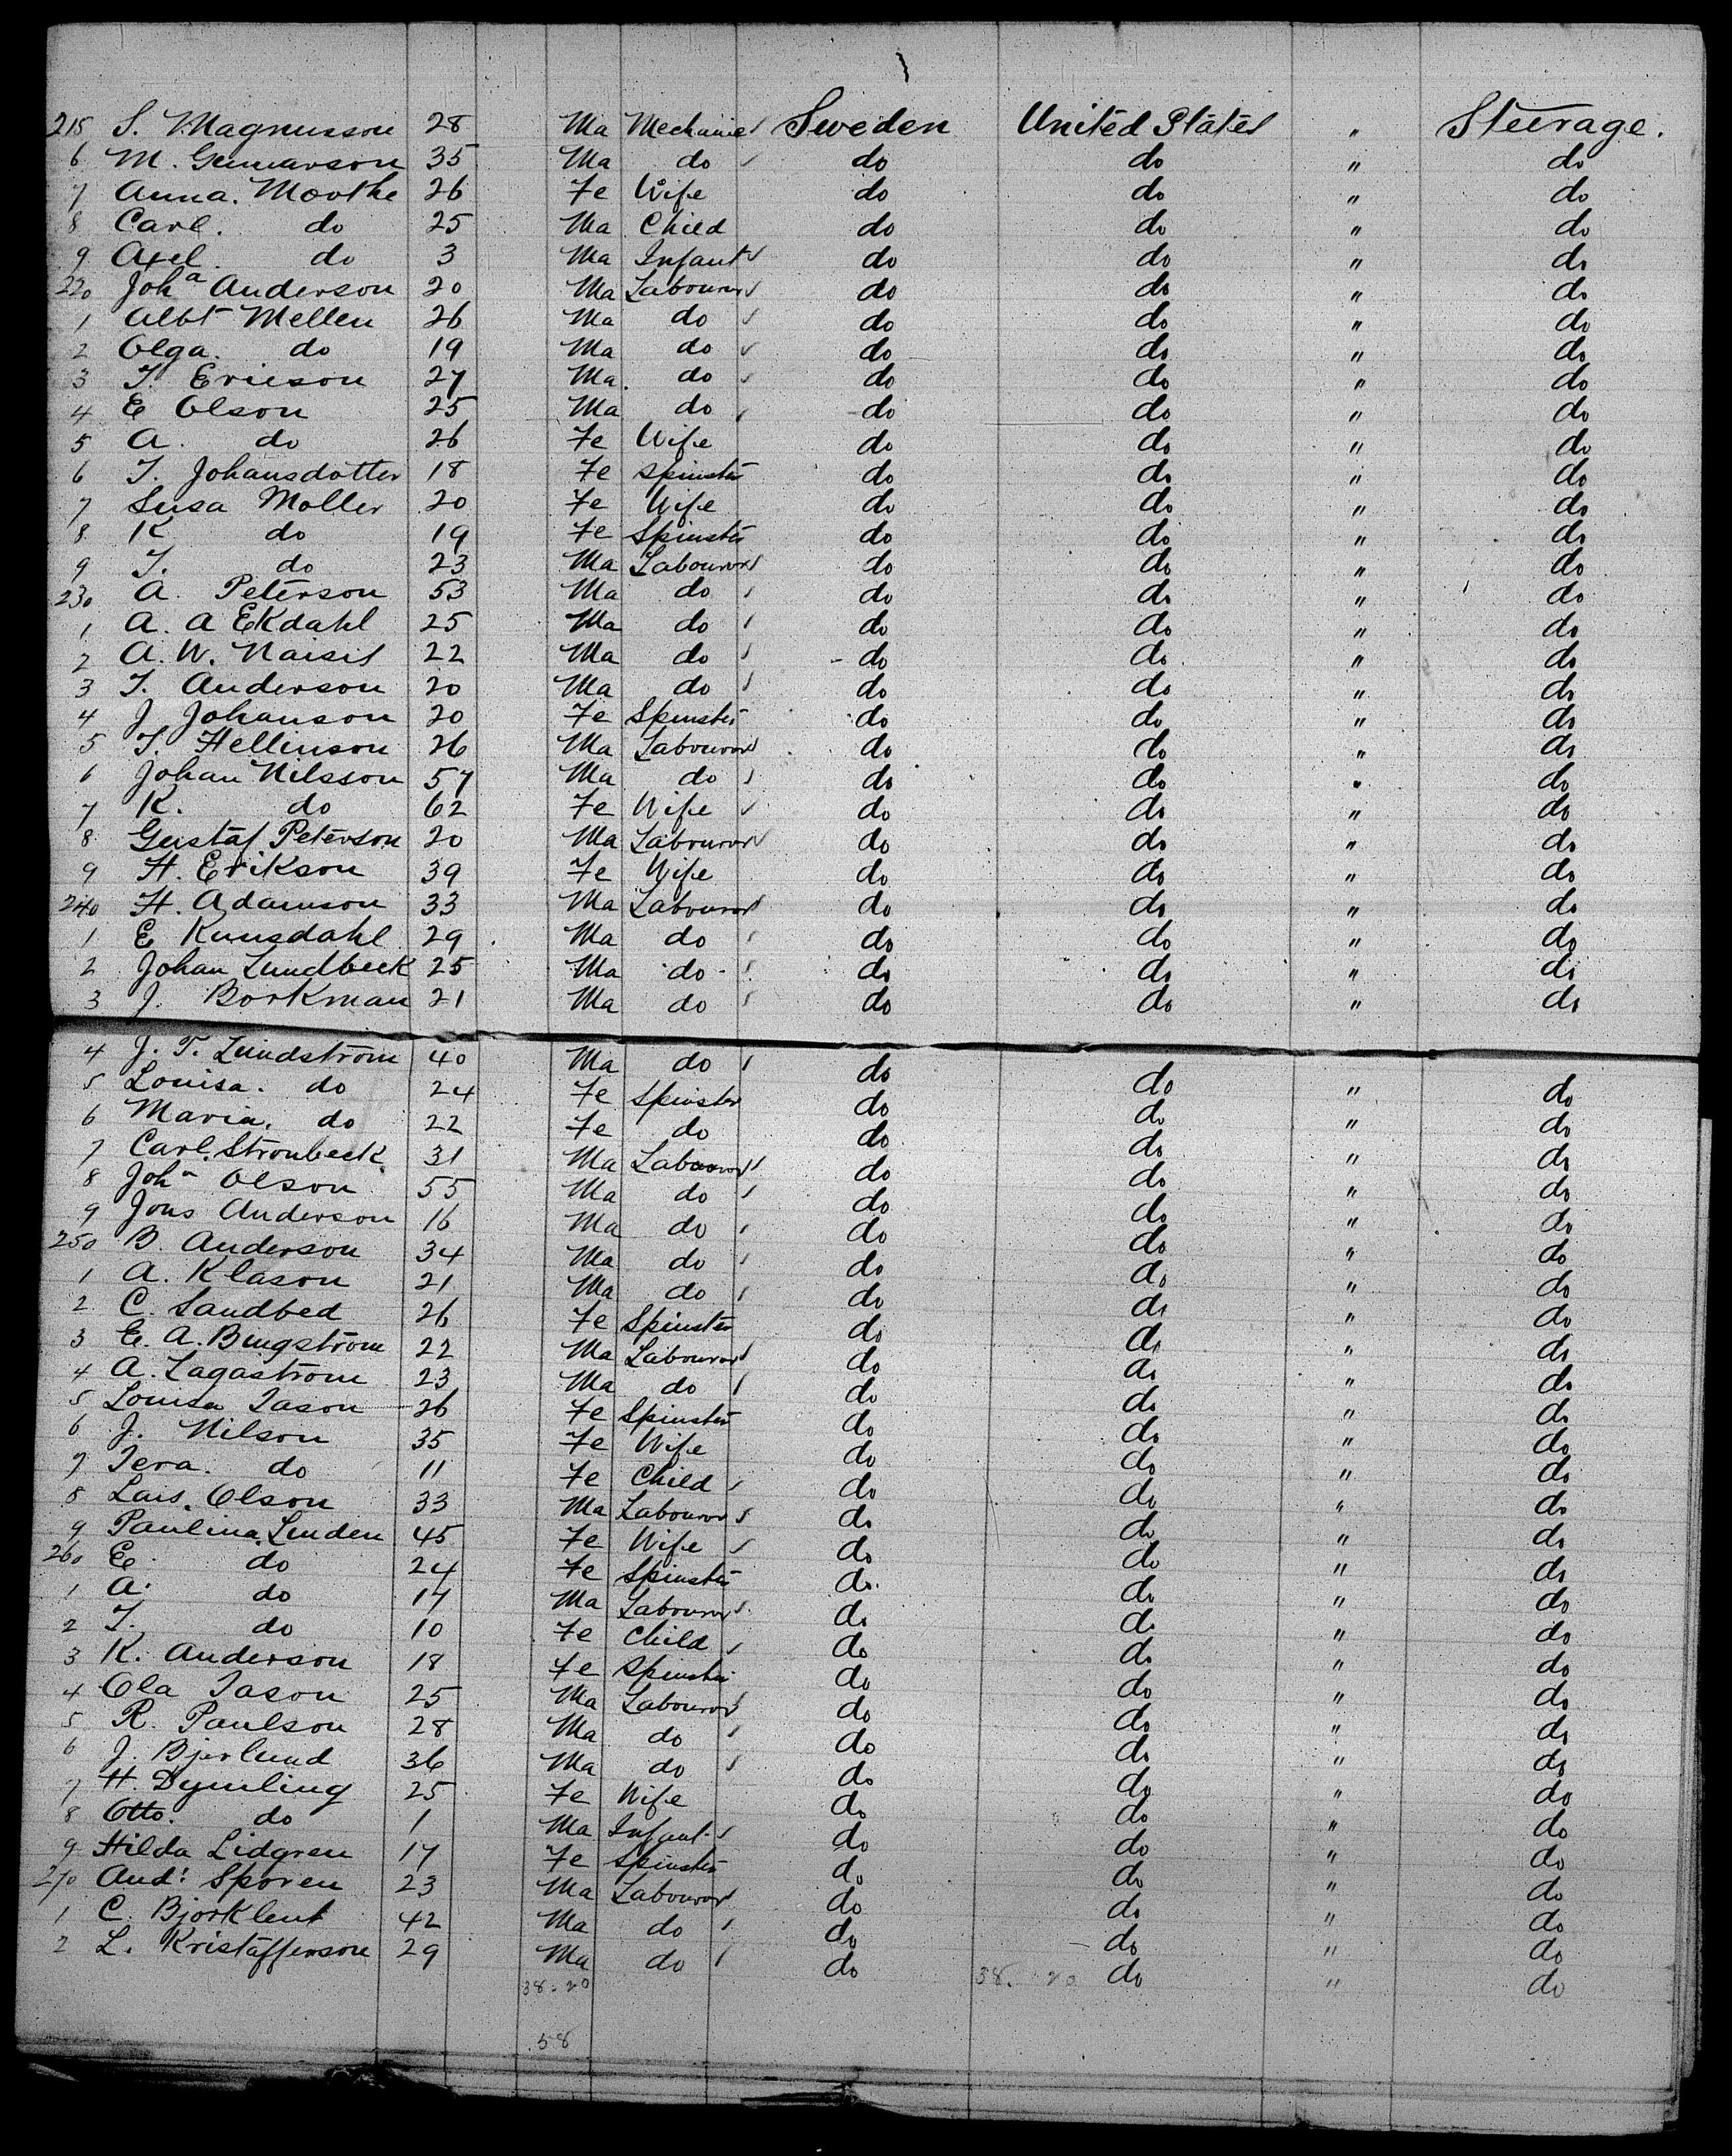 215 S. Magnusson 28 Ma Mechanic Sweden United States " Steerage.
6 M. Gunnarson 35 Ma do do do " do
7 Anna. Moothe 26 Fe Wife do do " do
8 Carl. do 25 Ma Child do do " do
9 Axel. do 3 Ma Infant do do " do
220 Joha Anderson 20 Ma Labourer do do " do
1 Albt Mellen 26 Ma do do do " do
2 Olga. do 19 Ma do do do " do
3 T. Ericson 27 Ma. do do do " do
4 E Olson 25 Ma do do do " do
5 A. do 26 Fe Wife do do " do
6 T. Johansdotter 18 Fe Spinster do do " do
7 Susa Moller 20 Fe Wife do do " do
8 K do 19 Fe Spinster do do " do
9 T. do 23 Ma Labourer do do " do
230 A. Peterson 53 Ma do do do " do
1 A. A Ekdahl 25 Ma do do do " do
2 A. W. 22 Ma do do do " do
3 T. Anderson 20 Ma do do do " do
4 J. Johanson 20 Fe Spinster do do " do
5 T. Hellinson 26 Ma Labourer do do " do
6 Johan Nilsson 57 Ma do do do " do
7 K. do 62 Fe Wife do do " do
8 Gustaf Peterson 20 Ma Labourer do do " do
9 H. Erikson 39 Fe Wife do do " do
240 H. Adamson 33 Ma Labourer do do " do
1 E Kunsdahl 29 Ma do do do " do
2 Johan Lundbeck 25 Ma do do do " do
3 J. Borkman 21 Ma do do do " do
4 J. T. Lundstrom 40 Ma do do do " do
5 Louisa. do 24 Fe Spinster do do " do
6 Maria. do 22 Fe do do do " do
7 Carl. Stronbeck 31 Ma Labourer do do " do
8 Joha Olson 55 Ma do do do " do
9 Jons Anderson 16 Ma do do do " do
250 B. Anderson 34 Ma do do do " do
1 A. Klason 21 Ma do do do " do
2 C. Sandbed 26 Fe Spinster do do " do
3 E. A. Bingstrom 22 Ma Labourer do do " do
4 A. Lagastrom 23 Ma do do do " do
5 Louisa Jason 26 Fe Spinster do do " do
6 J. Nilson 35 Fe Wife do do " do
7 Tera. do 11 Fe Child do do " do
8 Lars. Olson 33 Ma Labourer do do " do
9 Paulina Linden 45 Fe Wife do do " do
260 E do 24 Fe Spinster do do " do
1 A. do 17 Ma Labourer do do " do
2 T. do 10 Fe Child do do " do
3 K. Anderson 18 Fe Spinster do do " do
4 Ola Jason 25 Ma Labourer do do " do
5 R. Paulson 28 Ma do do do " do
6 J. Bjerlund 36 Ma do do do " do
7 H. Dymling 25 Fe Wife do do " do
8 Otto. do 1 Ma Infant do do " do
9 Hilda Lidgren 17 Fe Spinster do do " do
270 And: Sporen 23 Ma Labourer do do " do
1 C. Bjorklent 42 Ma do do do " do
2 L. Kristafferson 29 Ma do do do " do
38. 20 38. 20
58